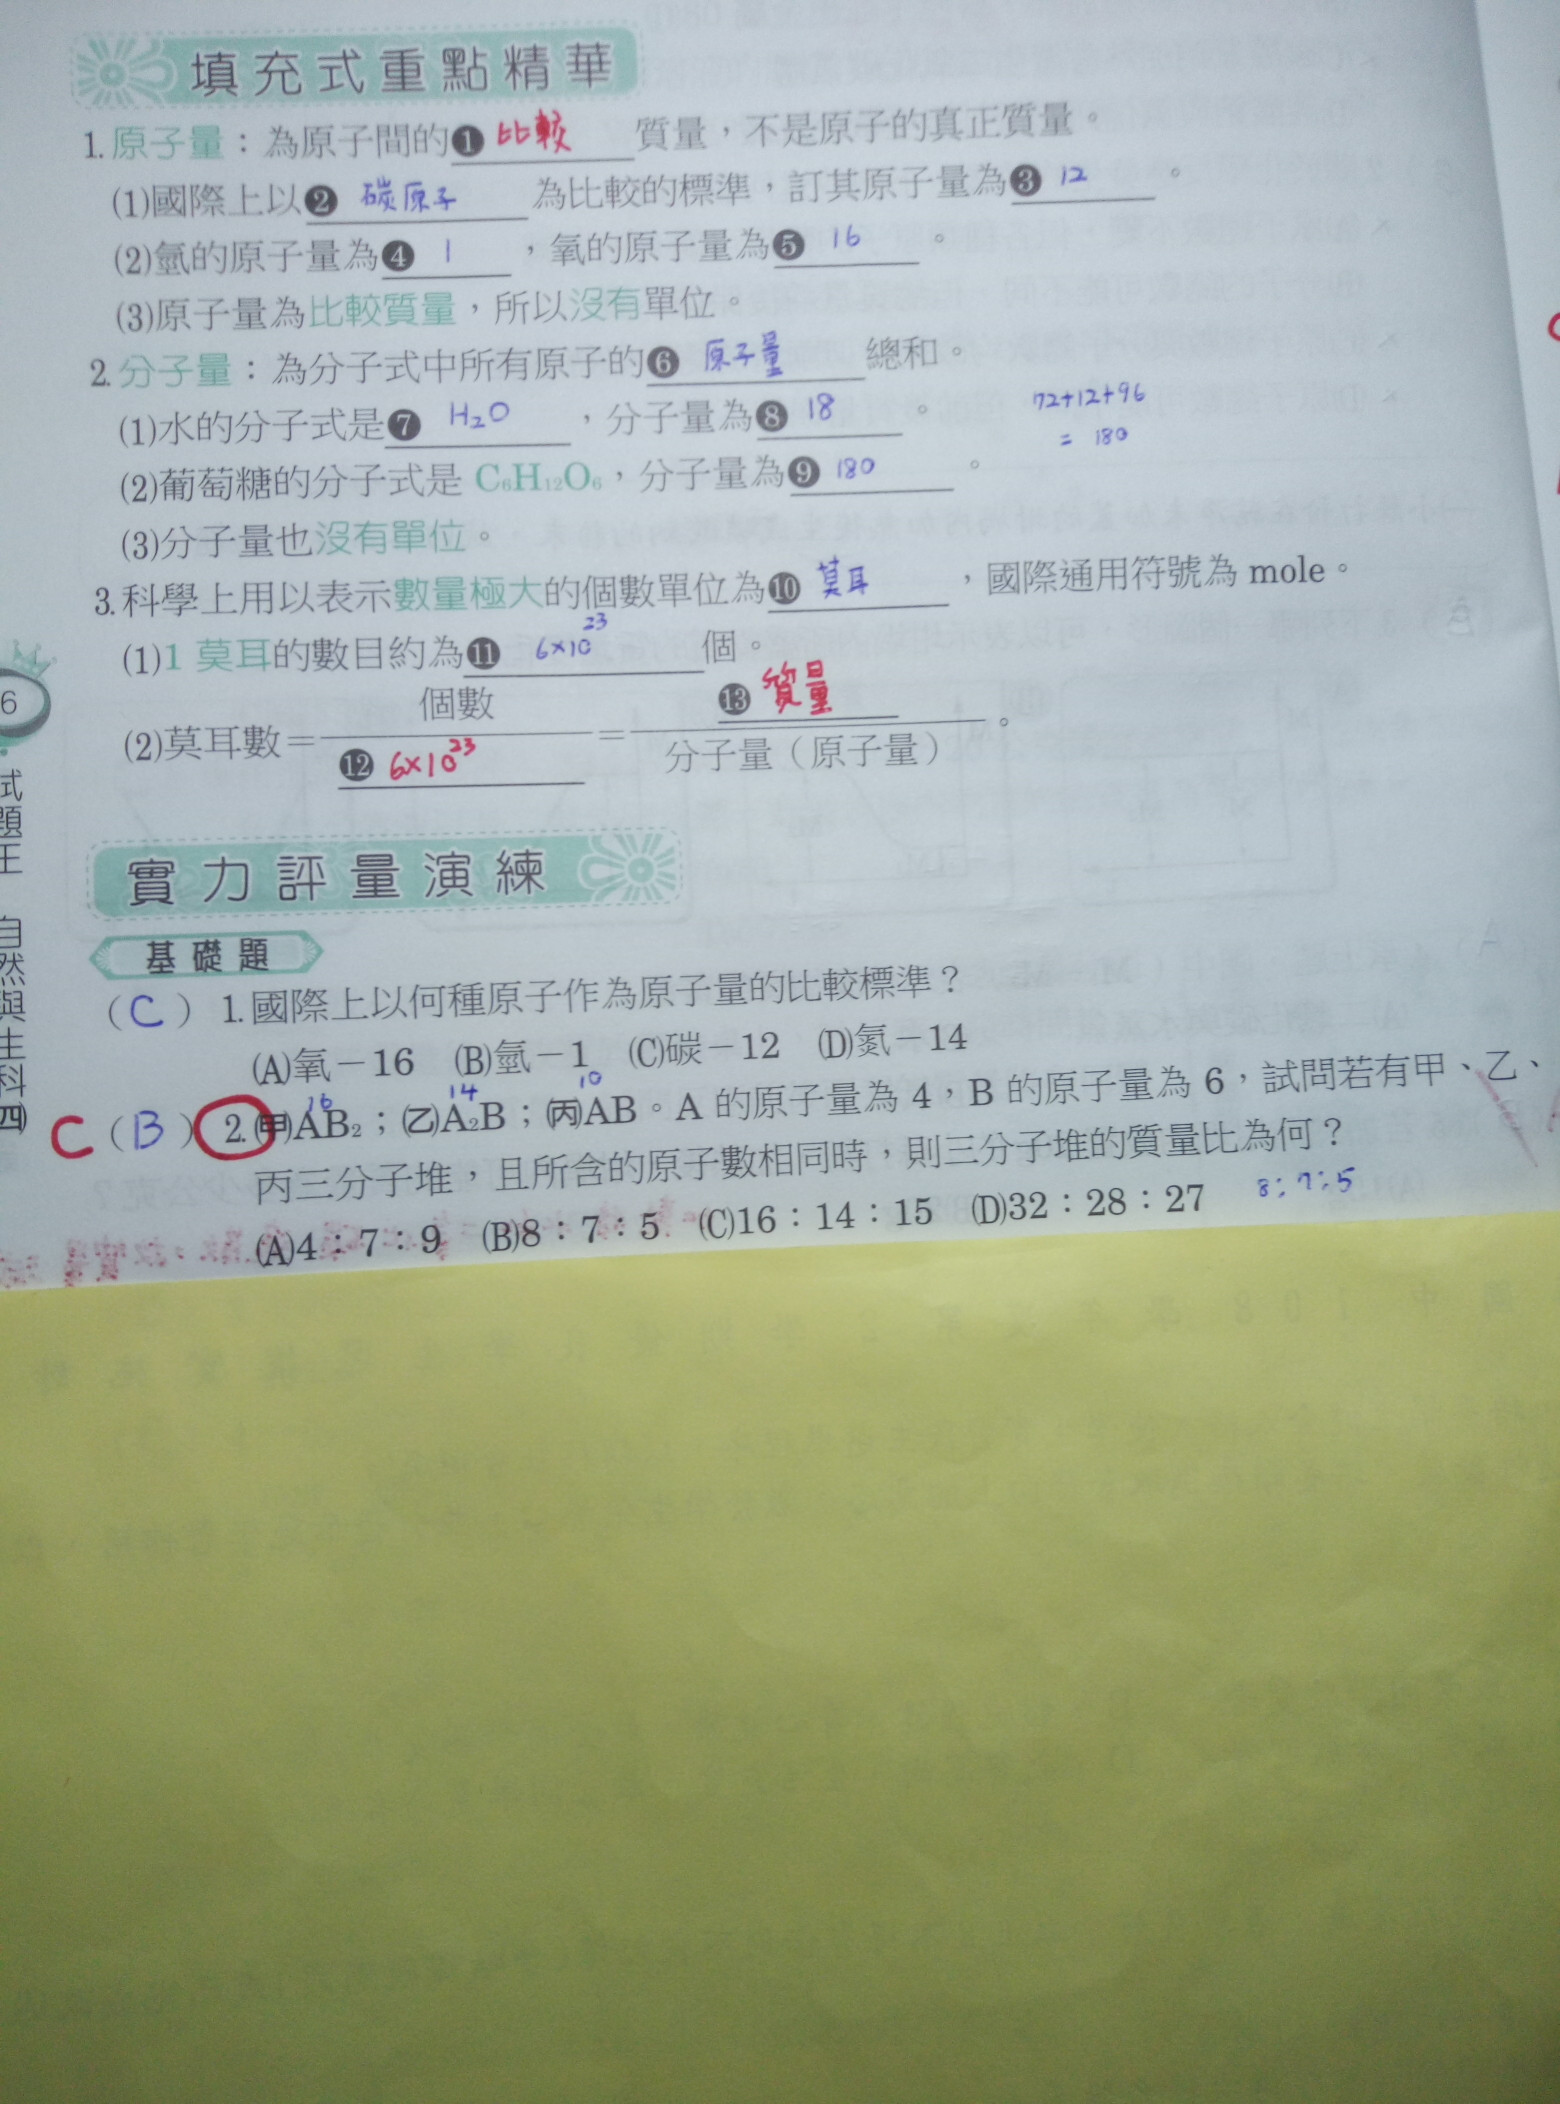 填充式重點精華
1.原子量：為原子間的❶比較質量，不是原子的真正質量。
(1)國際上以❷碳原子為比較的標準，訂其原子量為❸12。
(2)氫的原子量為❹1，氧的原子量為❺16。
(3)原子量為比較質量，所以沒有單位。
2.分子量：為分子式中所有原子的❻原子量總和。
(1)水的分子式是❼H₂O，分子量為❽18。
72+12+96
= 180
(2)葡萄糖的分子式是 C₆H₁₂O₆，分子量為❾180。
(3)分子量也沒有單位。
3.科學上用以表示數量極大的個數單位為❿莫耳，國際通用符號為 mole。
(1)1 莫耳的數目約為⓫6×10²³個。
(2)莫耳數＝個數/⓬6×10²³＝⓭質量/分子量（原子量）。
6
試題王 自然與生科(四)
實力評量演練
基礎題
（C）1.國際上以何種原子作為原子量的比較標準？
(A)氧－16 (B)氫－1 (C)碳－12 (D)氮－14
16 14 10
C（B）2.(甲)AB₂；(乙)A₂B；(丙)AB。A 的原子量為 4，B 的原子量為 6，試問若有甲、乙、
丙三分子堆，且所含的原子數相同時，則三分子堆的質量比為何？
8:7:5
(A)4：7：9 (B)8：7：5 (C)16：14：15 (D)32：28：27